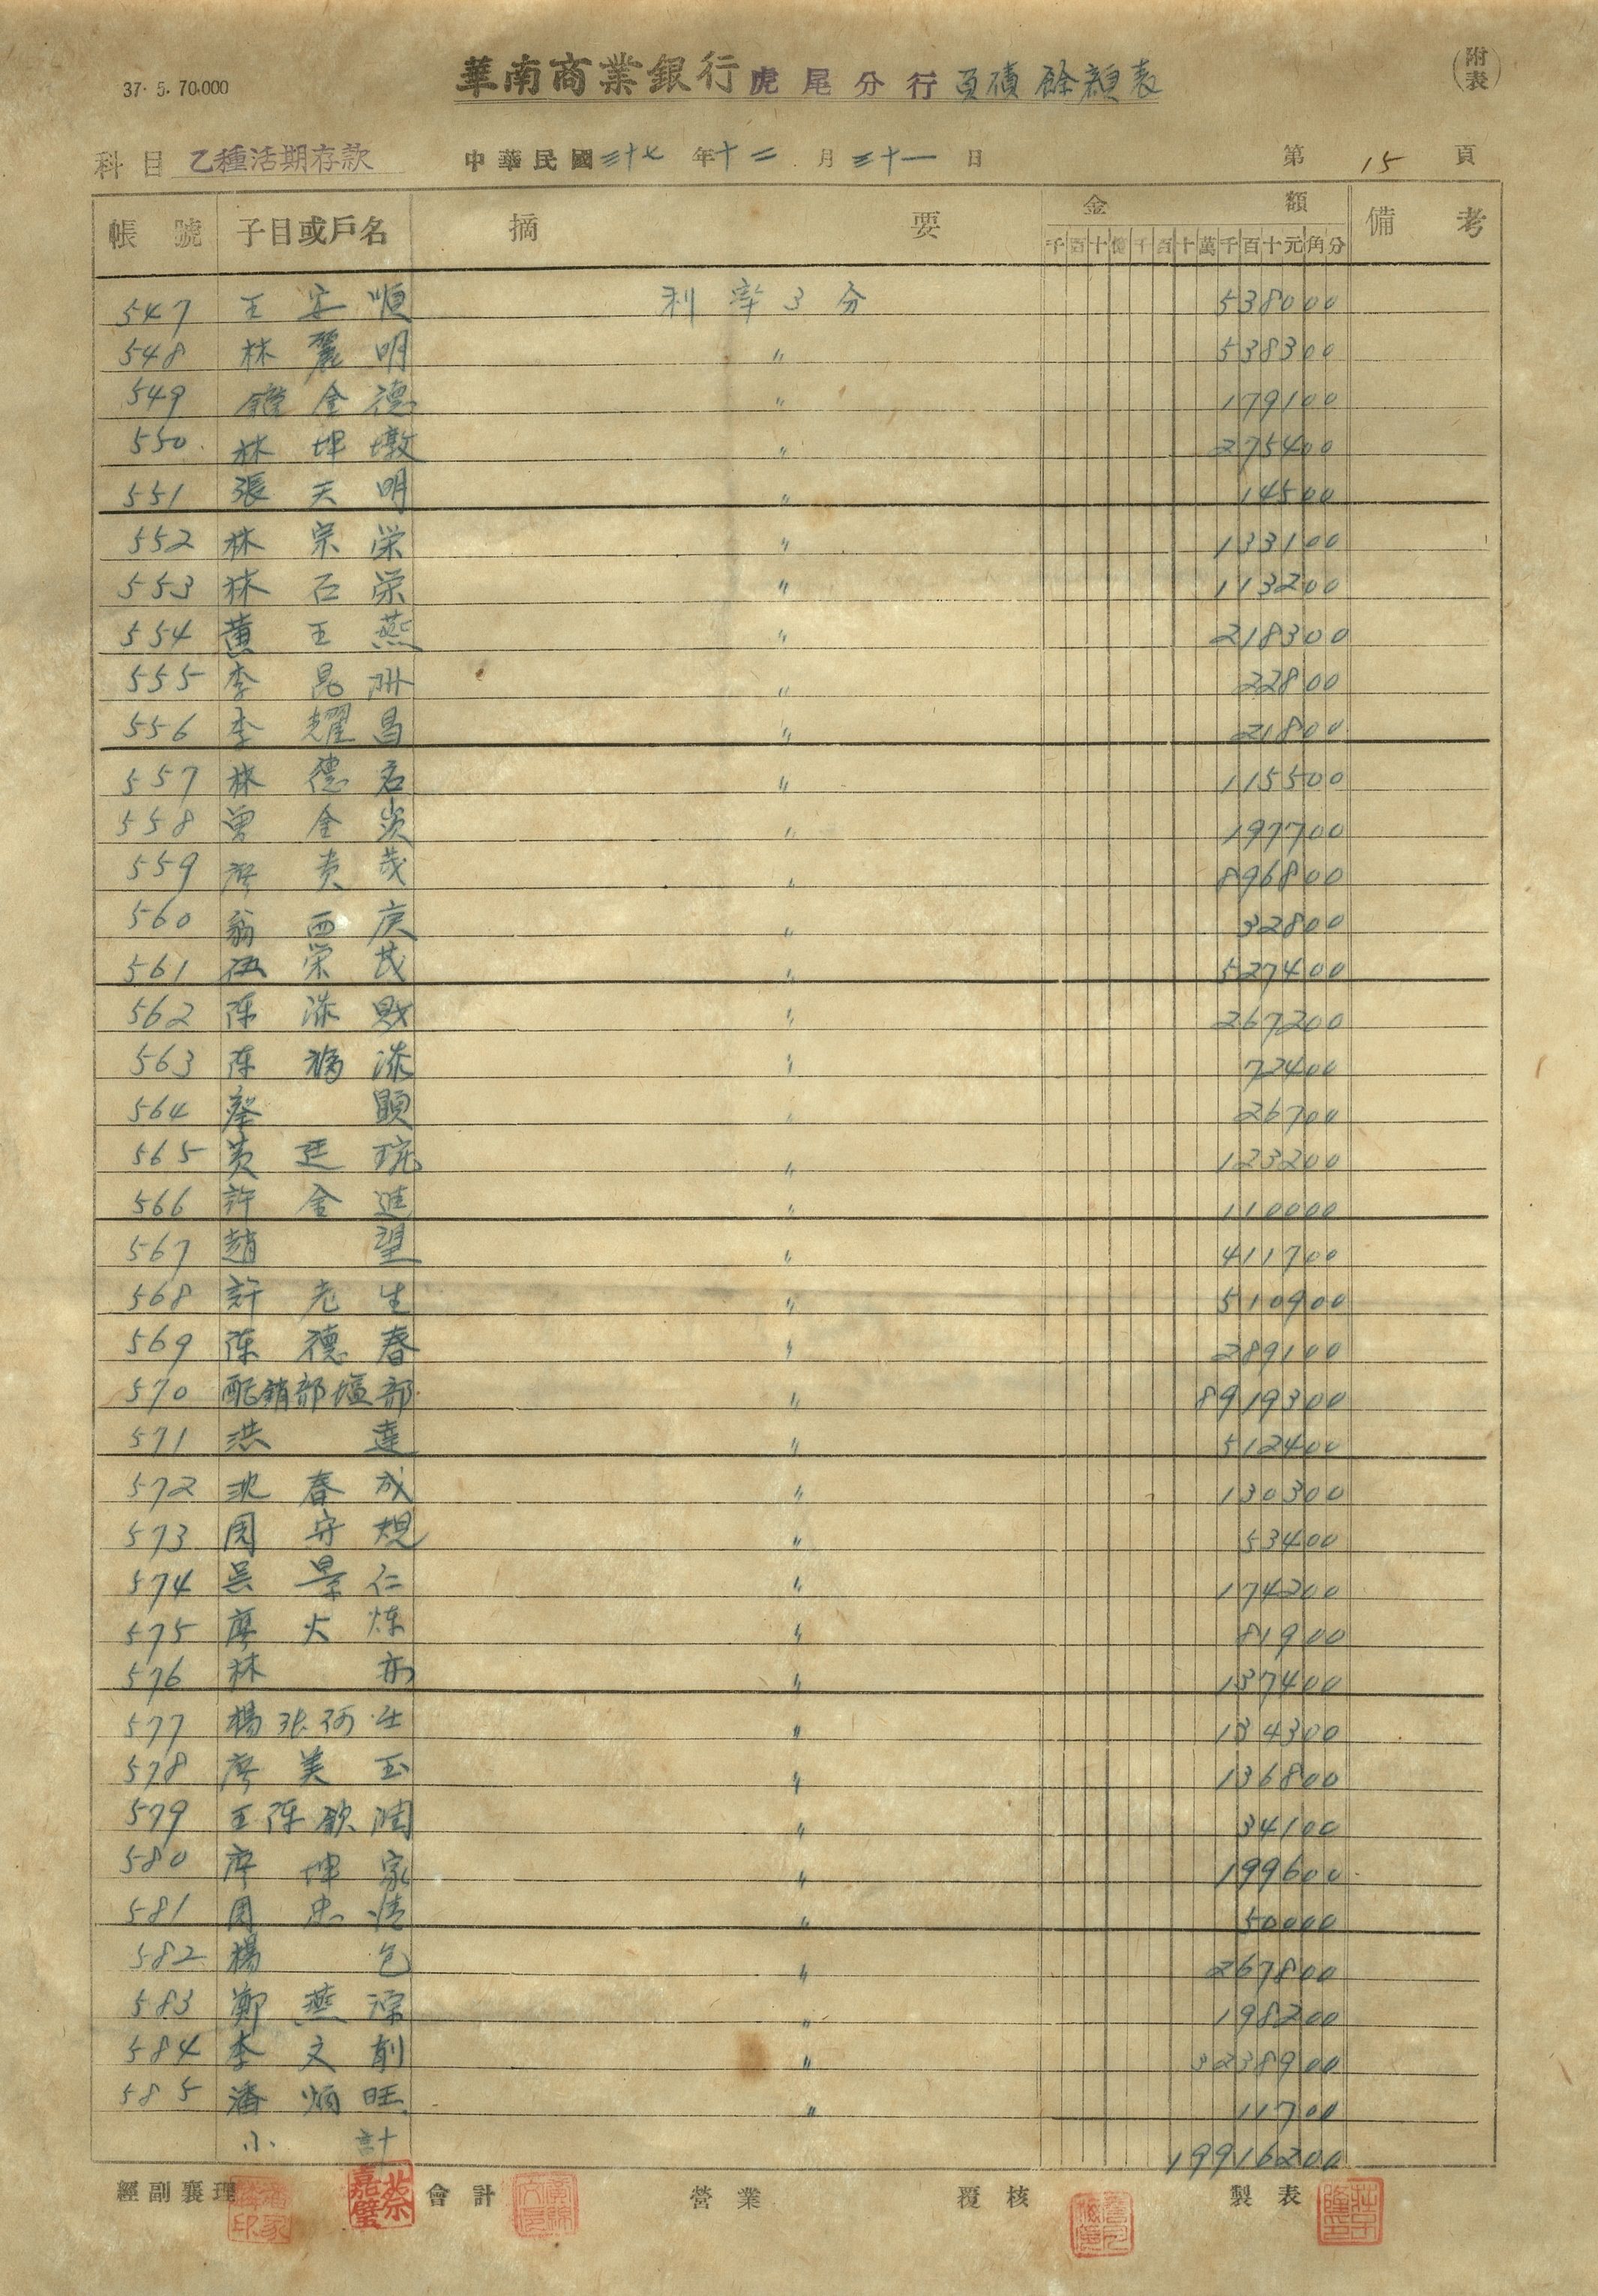 37. 5. 70.000
華南商業銀行虎尾分行負債餘額表
(附表)
科目 乙種活期存款 中華民國三十七年十二月三十一日 第15頁
帳號 子目或戶名 摘要 金額 備考
千百十億千百十萬千百十元角分
547 王安順 利率3分 538000
548 林麗明 〃 538300
549 鍾金德 〃 179100
550 林坤墩 〃 275400
551 張天明 〃 14500
552 林宗栄 〃 133100
553 林石栄 〃 113200
554 黄王燕 〃 218300
555 李昆 〃 22800
556 李耀昌 〃 21800
557 林德名 〃 115500
558 曽金炎 〃 197700
559 廖貴茂 〃 896800
560 翁西庚 〃 32800
561 伍栄茂 〃 527400
562 陈添財 〃 267200
563 陈添 〃 72400
564 蔡顕 〃 26700
565 黄廷琬 〃 123200
566 許金進 〃 110000
567 趙望 〃 411700
568 許老生 〃 510900
569 陈德春 〃 289100
570 配銷部塩部 〃 8919300
571 洪達 〃 512400
572 沈春成 〃 130300
573 周守規 〃 53400
574 吳景仁 〃 174200
575 廖火炼 〃 81900
576 林 〃 137400
577 楊张阿 〃 134300
578 廖美玉 〃 136800
579 王陈欽 〃 34100
580 廖坤家 〃 199600
581 周忠 〃 50000
582 楊包 〃 267800
583 鄭燕 〃 198200
584 李文 〃 3238900
585 潘炳旺 〃 11700
小計 19916200
經副襄理 會計 營業 覆核 製表
蔡嘉璧